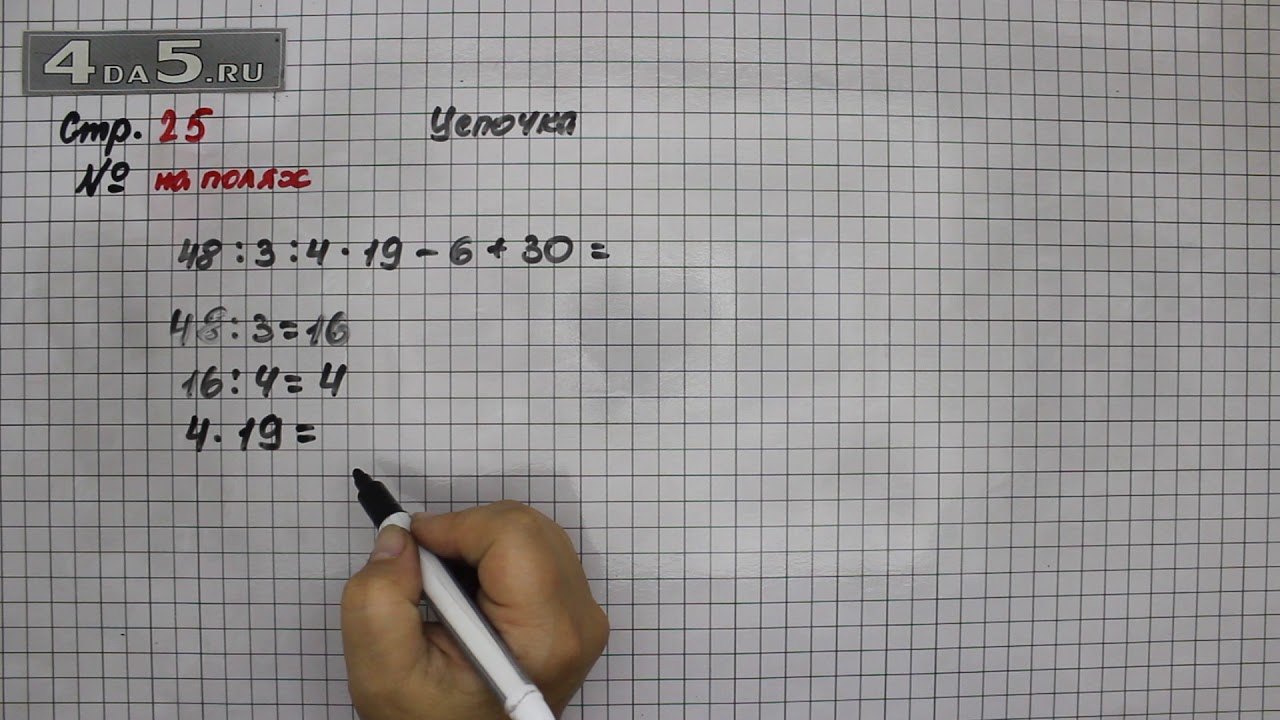 4DA5.RU
Стр. 25
Цепочка
№ на полях
48 : 3 : 4 · 19 - 6 + 30 =
48 : 3 = 16
16 : 4 = 4
4 · 19 =